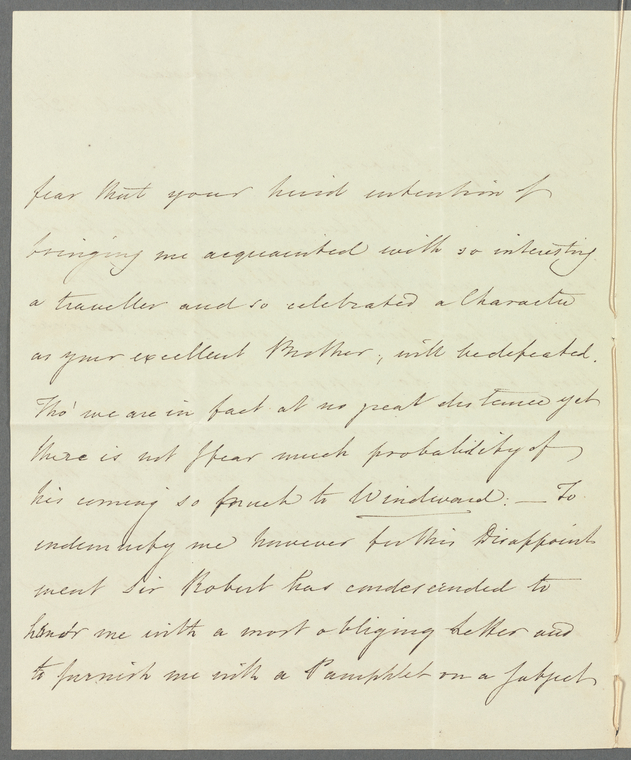 fear that your kind intention of
bringing me acquainted with so interesting
a traveller and so celebrated a Character
as your excellent Brother, will be defeated.
Tho' we are in fact at no great distance yet
there is not I fear much probability of
his coming so much to Windward: — To
indemnify me however for this Disappoint
ment Sir Robert has condescended to
honor me with a most obliging Letter and
to furnish me with a Pamphlet on a Subject